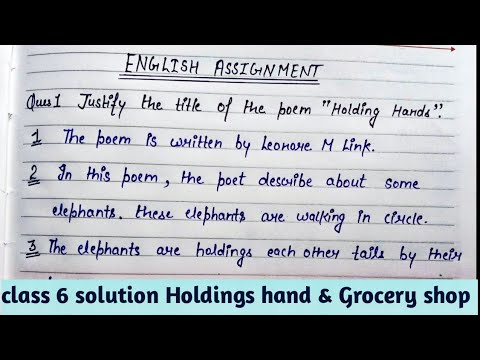 ENGLISH ASSIGNMENT
Ques 1 Justify the title of the poem "Holding Hands".
1 The poem is written by Leonore M Link.
2 In this poem, the poet describe about some
elephants. these elephants are walking in circle.
3 The elephants are holdings each other tails by their
class 6 solution Holdings hand & Grocery shop